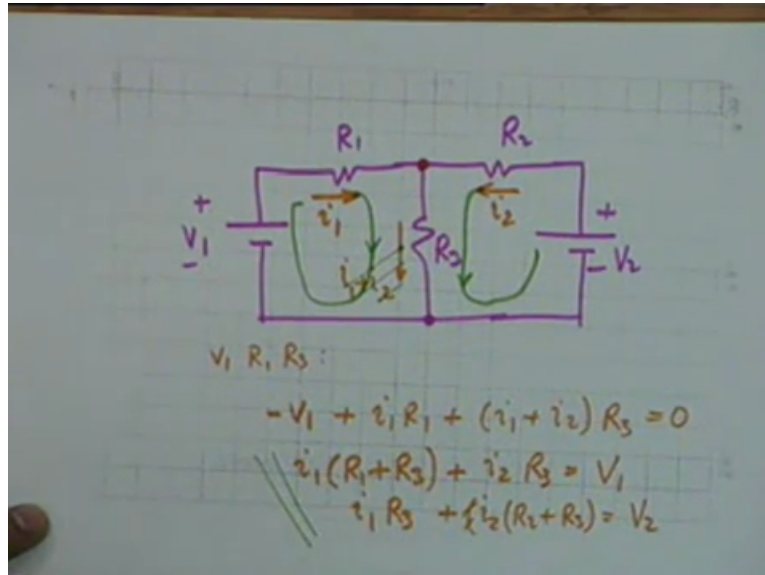 R₁ R₂
+ i₁ i₂ +
V₁ i₁+i₂ R₃ V₂
- -
V₁ R₁ R₃ :
- V₁ + i₁R₁ + (i₁+i₂) R₃ = 0
i₁(R₁+R₃) + i₂ R₃ = V₁
i₁ R₃ + i₂(R₂+R₃) = V₂